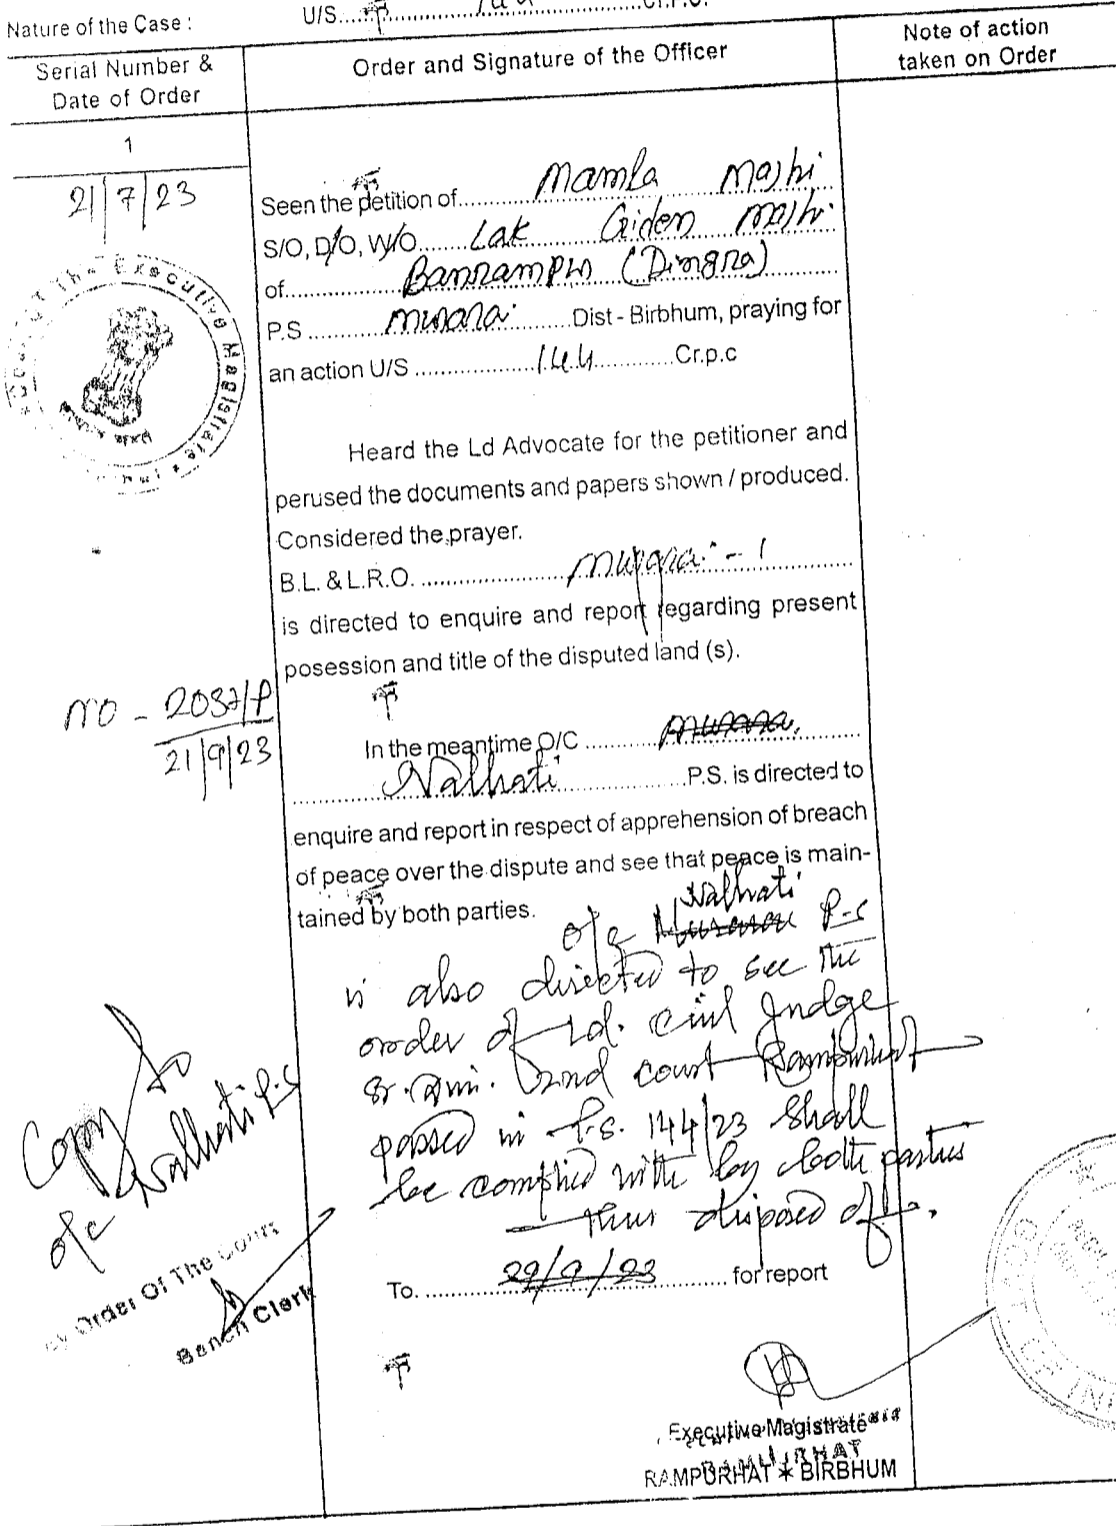 Nature of the Case :
U/S.....144.....Cr.P.C.
Serial Number &
Date of Order
Order and Signature of the Officer
Note of action
taken on Order
1
21/7/23
Seen the petition of..... Mamla Mashi
S/O, D/O, W/O..... Lak Giden Mashi
of..... Banrampur (Dimgra)
P.S ..... Murarai .....Dist - Birbhum, praying for
an action U/S .....144..... Cr.p.c
Executive Magistrate
Heard the Ld Advocate for the petitioner and
perused the documents and papers shown / produced.
Considered the prayer.
B.L. & L.R.O. ..... Murarai - 1
is directed to enquire and report regarding present
posession and title of the disputed land (s).
NO - 2037/P
21/9/23
In the meantime O/C ..... Murarai
..... Nalhati .....P.S. is directed to
enquire and report in respect of apprehension of breach
of peace over the dispute and see that peace is main-
tained by both parties.
Nalhati
O/C Murarai P.S
is also directed to see the
order of Ld. Civil Judge
Sr. Divi. 2nd court Rampurhat
passed in T.S. 144/23 shall
be complied with by both parties
Thus disposed off.
Copy to
O/C Nalhati P.S
By Order Of The Court
Bench Clerk
To. ..... 29/9/23 ..... for report
Executive Magistrate
RAMPURHAT * BIRBHUM